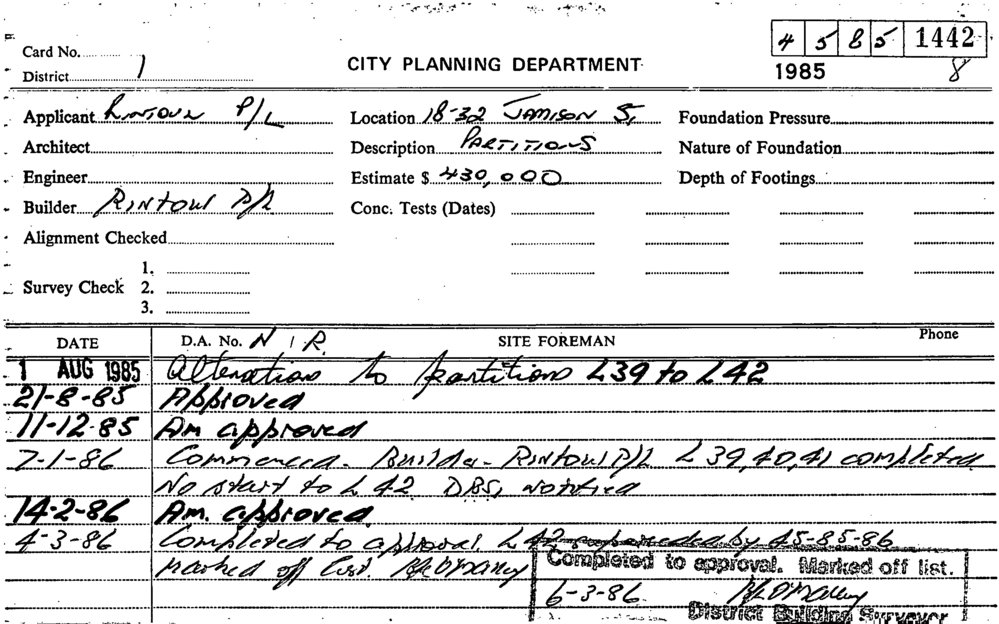 4 5 85 1442
Card No.
1985 8
District 1
CITY PLANNING DEPARTMENT
Applicant Rintoul P/L
Location 18-32 Jamison St
Foundation Pressure
Architect
Description Partitions
Nature of Foundation
Engineer
Estimate $ 430,000
Depth of Footings
Builder Rintoul P/L
Conc. Tests (Dates)
Alignment Checked
Survey Check 1.
2.
3.
DATE D.A. No. N I R. SITE FOREMAN Phone
1 AUG 1985 Alterations to partitions L39 to L42
21-8-85 Approved
11-12-85 Am approved
7-1-86 Commenced - Builder - Rintoul P/L L39,40,41 completed
No start to L42. DBS, notified
14-2-86 Am. approved.
4-3-86 Completed to approval. L42 superseded by 45-85-86
Marked off list.
Completed to approval. Marked off list.
6-3-86
District Building Surveyor